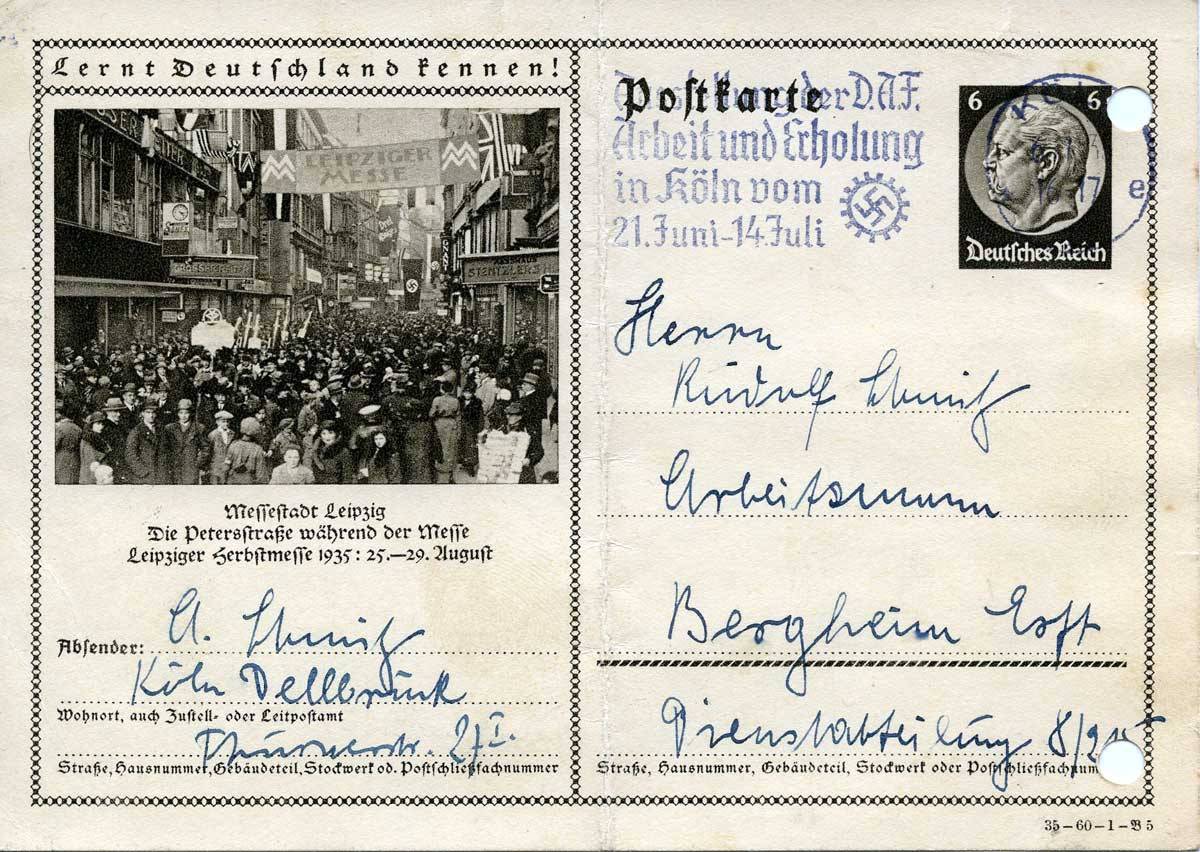 Lernt Deutschland kennen!
LEIPZIGER
MESSE
STENTZLERS
Messestadt Leipzig
Die Petersstraße während der Messe
Leipziger Herbstmesse 1935: 25.—29. August
Absender:
Köln Dellbrück
Wohnort, auch Zustell- oder Leitpostamt
27 I.
Straße, Hausnummer, Gebäudeteil, Stockwerk od. Postschließfachnummer
Postkarte
Ausstellung der D.A.F.
Arbeit und Erholung
in Köln vom
21. Juni-14. Juli
6 6
Deutsches Reich
Herrn
Rudolf Schmitz
Arbeitsmann
Bergheim Erft
Dienstabteilung
Straße, Hausnummer, Gebäudeteil, Stockwerk oder Postschließfachnum
35-60-1-B 5